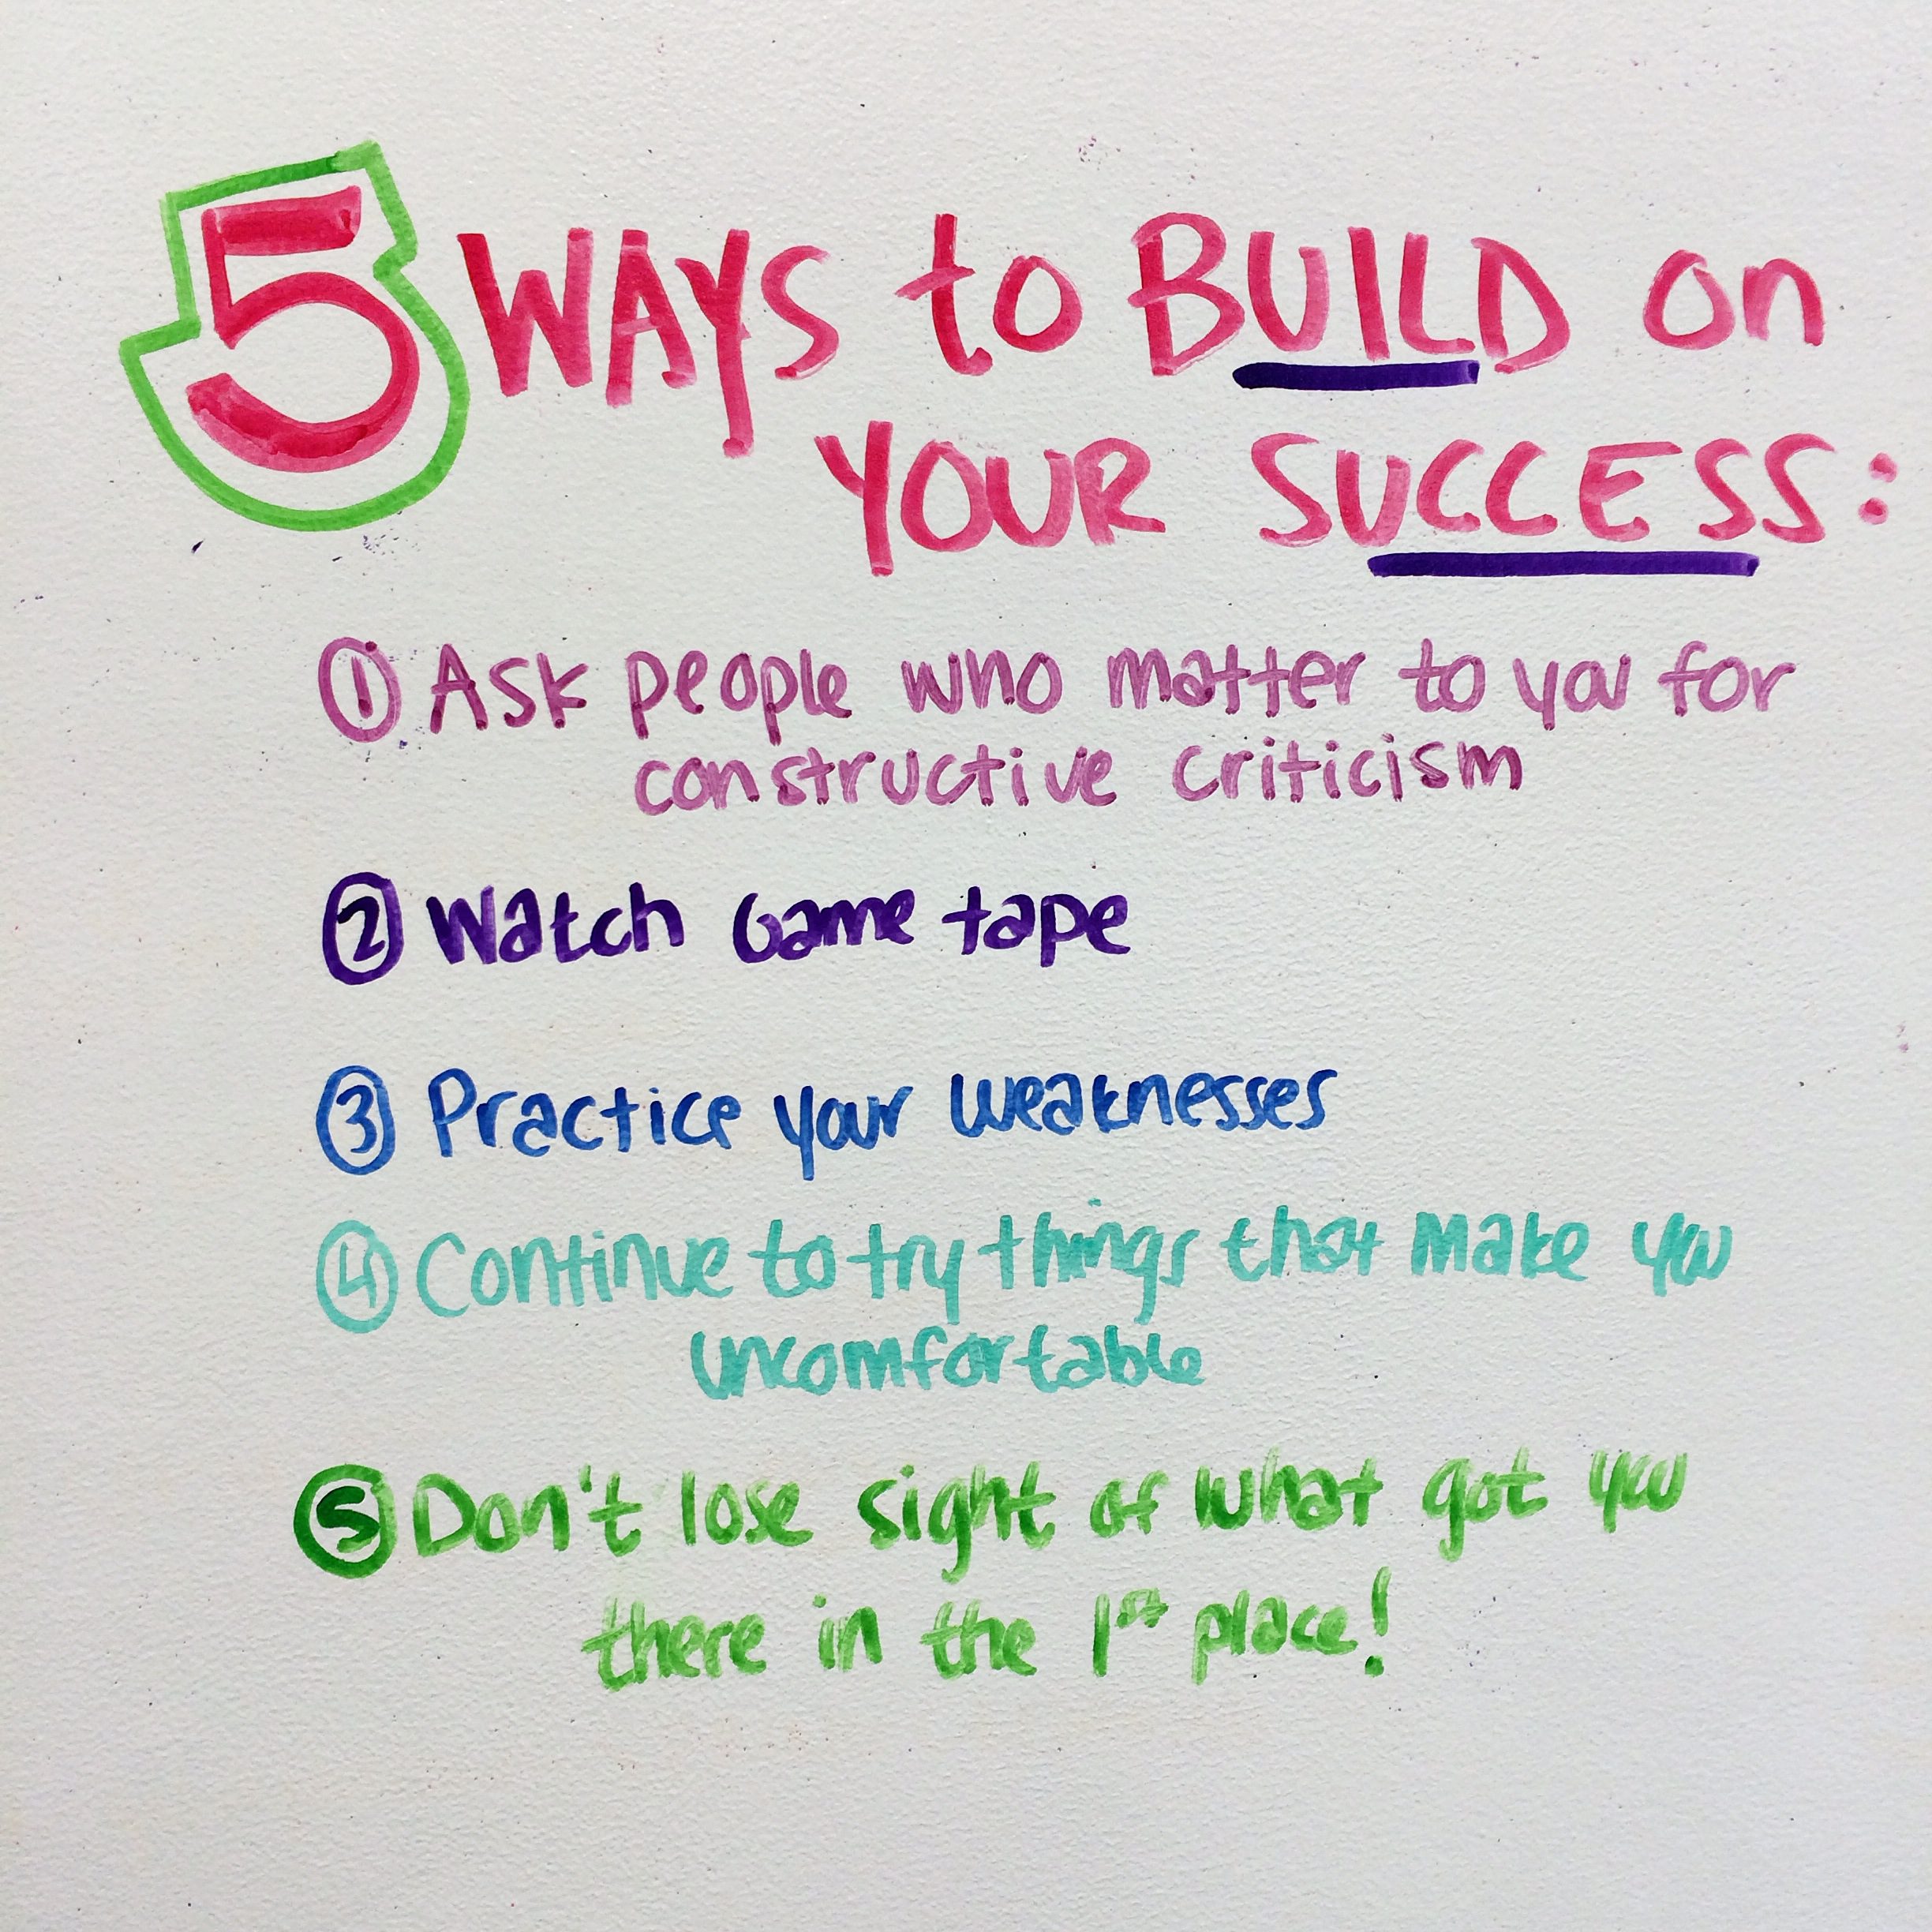 5 WAYS to BUILD on
YOUR SUCCESS:
① Ask people who matter to you for
constructive criticism
② Watch Game tape
③ Practice your weaknesses
④ Continue to try things that make you
uncomfortable
⑤ Don't lose sight of what got you
there in the 1st place!